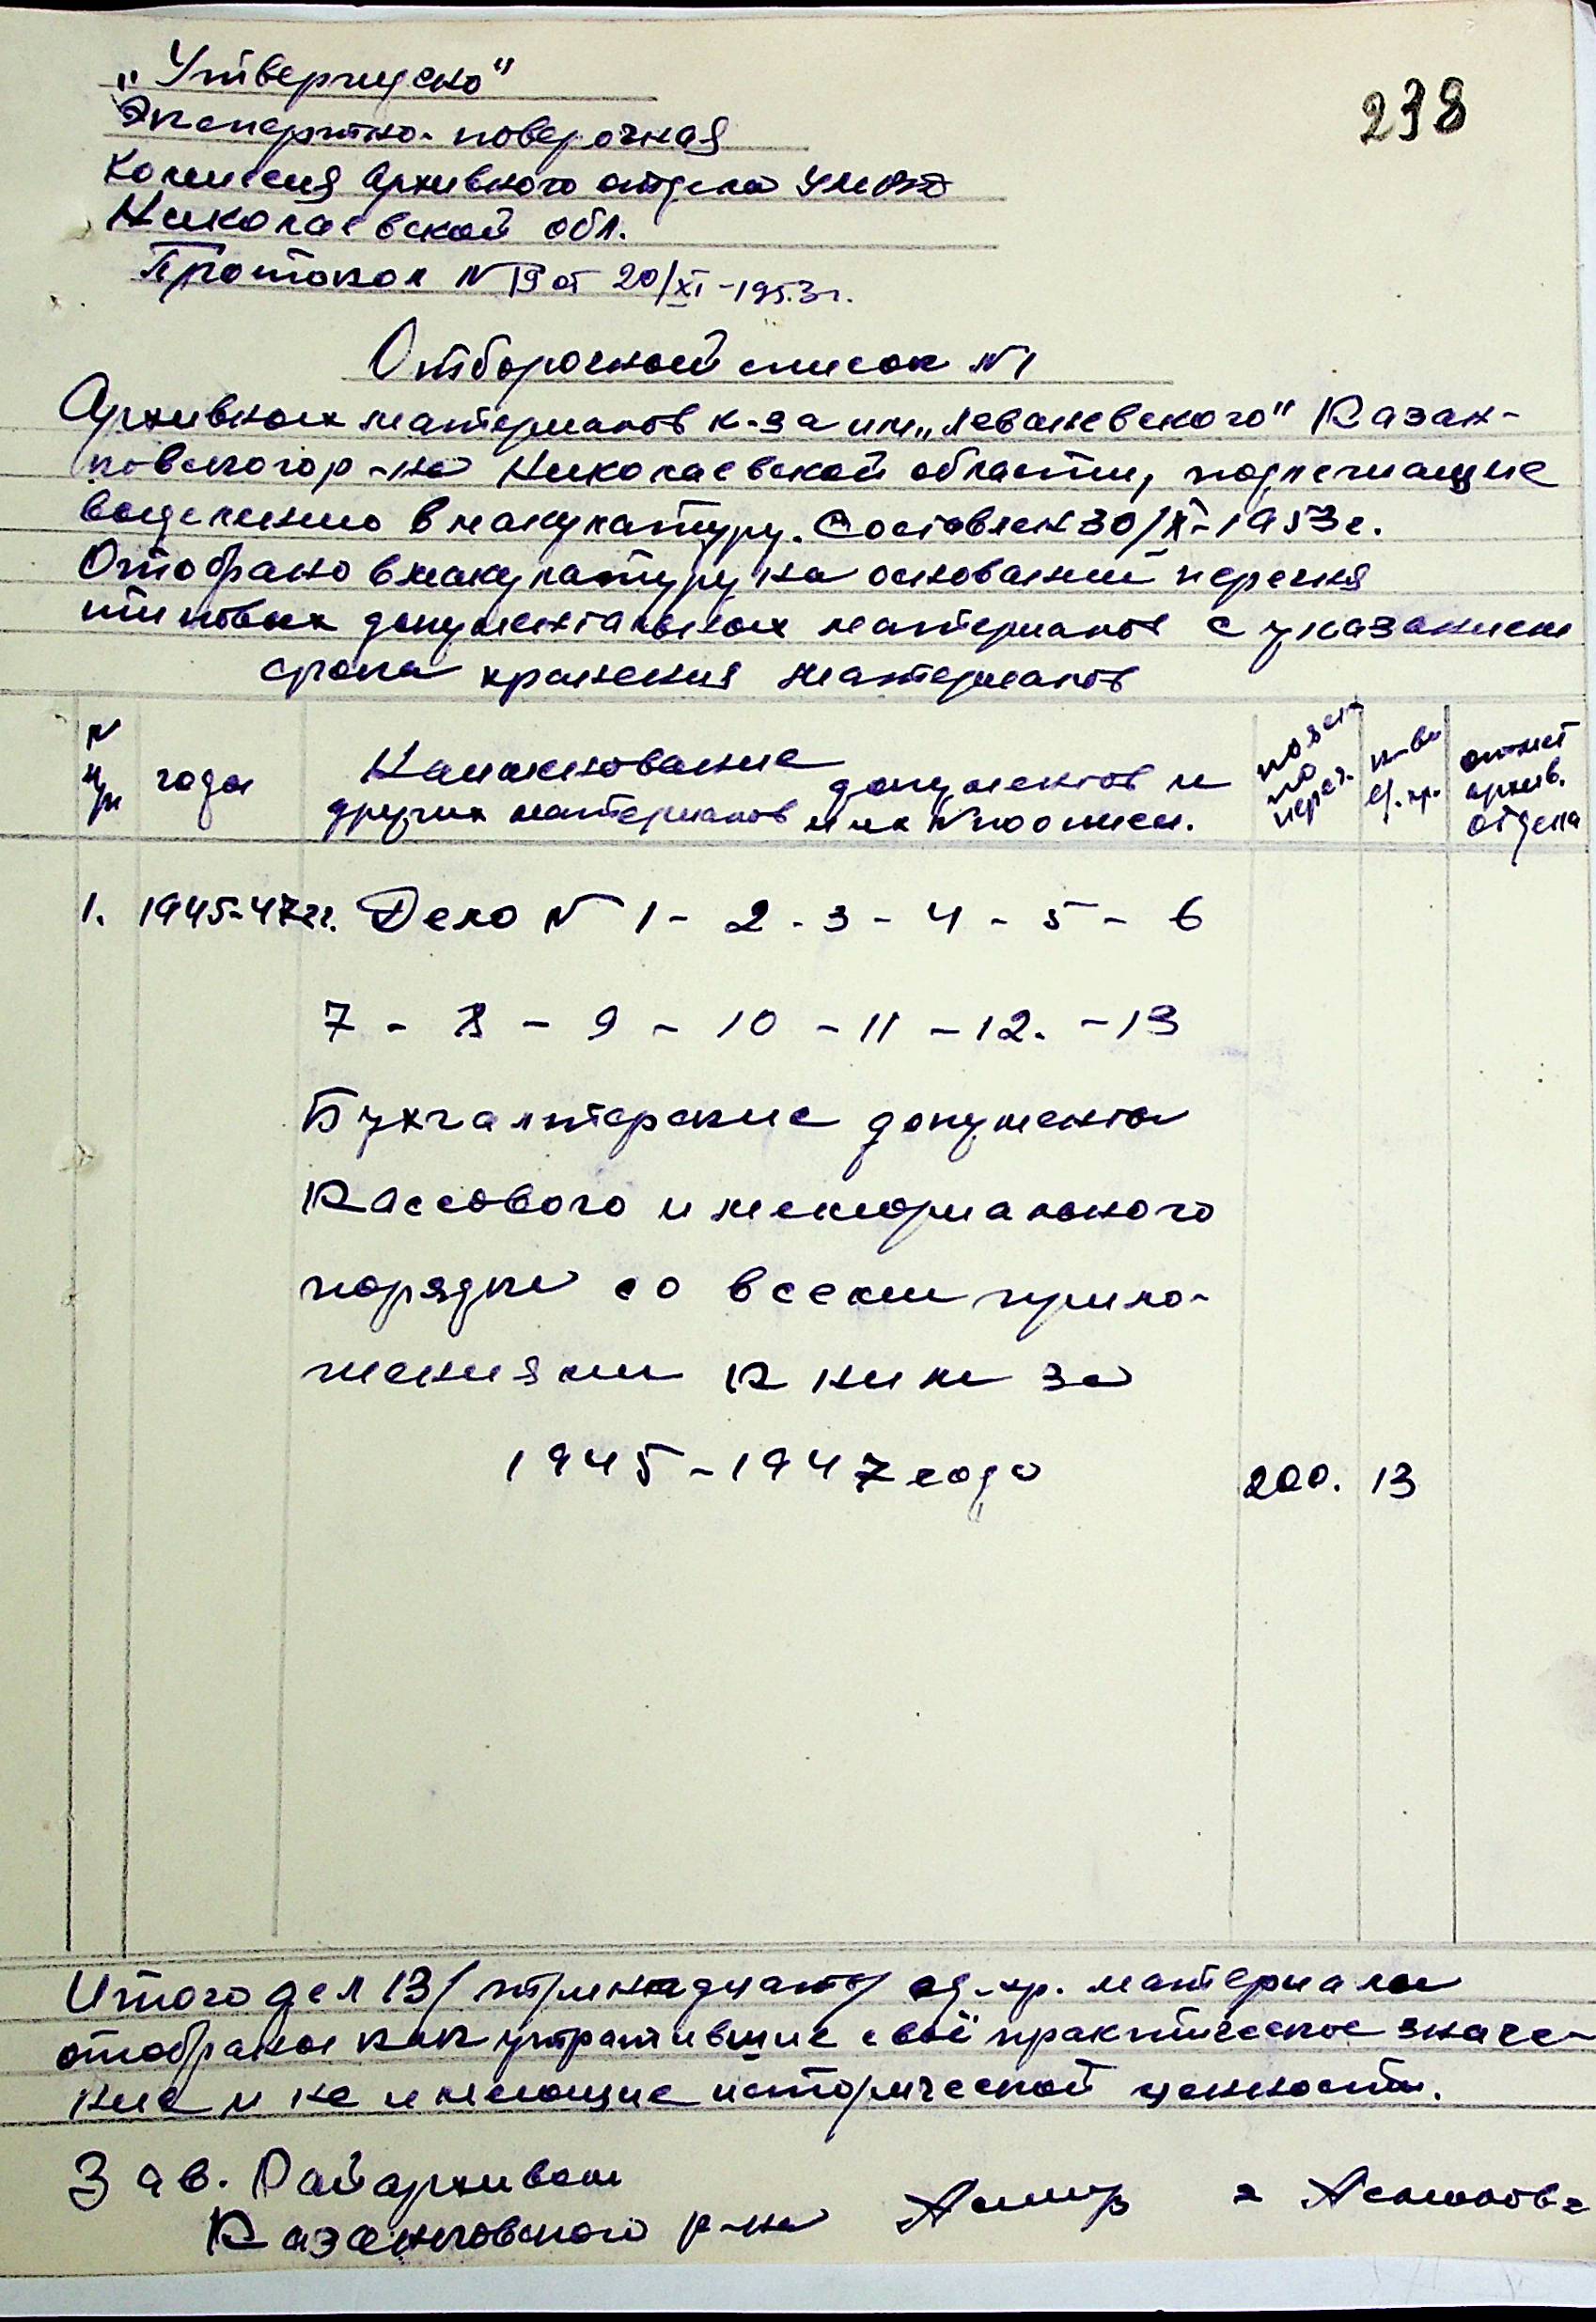 238
„Утверждено"
Экспертно-поверочная
комиссия Архивного отдела УМВД
Николаевской обл.
Протокол N 19 от 20/XI-1953г.
Отборочный список N1
Архивных материалов к-за им „Леваневского" Казан-
ковского р-на Николаевской области, подлежащие
выделению в макулатуру. Составлен 30/X-1953г.
Отобрано в макулатуру на основании перечня
типовых документальных материалов с указанием
срока хранения материалов
N п/п годы Наименование документов и других материалов и их N по описи. позиц. по переч. к-во ед. хр. отмет архив. отдела
1. 1945-47гг. Дело N 1 - 2 - 3 - 4 - 5 - 6
7 - 8 - 9 - 10 - 11 - 12. - 13
Бухгалтерские документы
кассового и мемориального
порядка со всеми прило-
жениями к ним за
1945-1947 года 200. 13
Итого дел 13/тринадцать/ ед.хр. материалы
отобраны как утратившие своё практическое значе-
ние и не имеющие исторической ценности.
Зав. Райархивом
Казанковского р-на